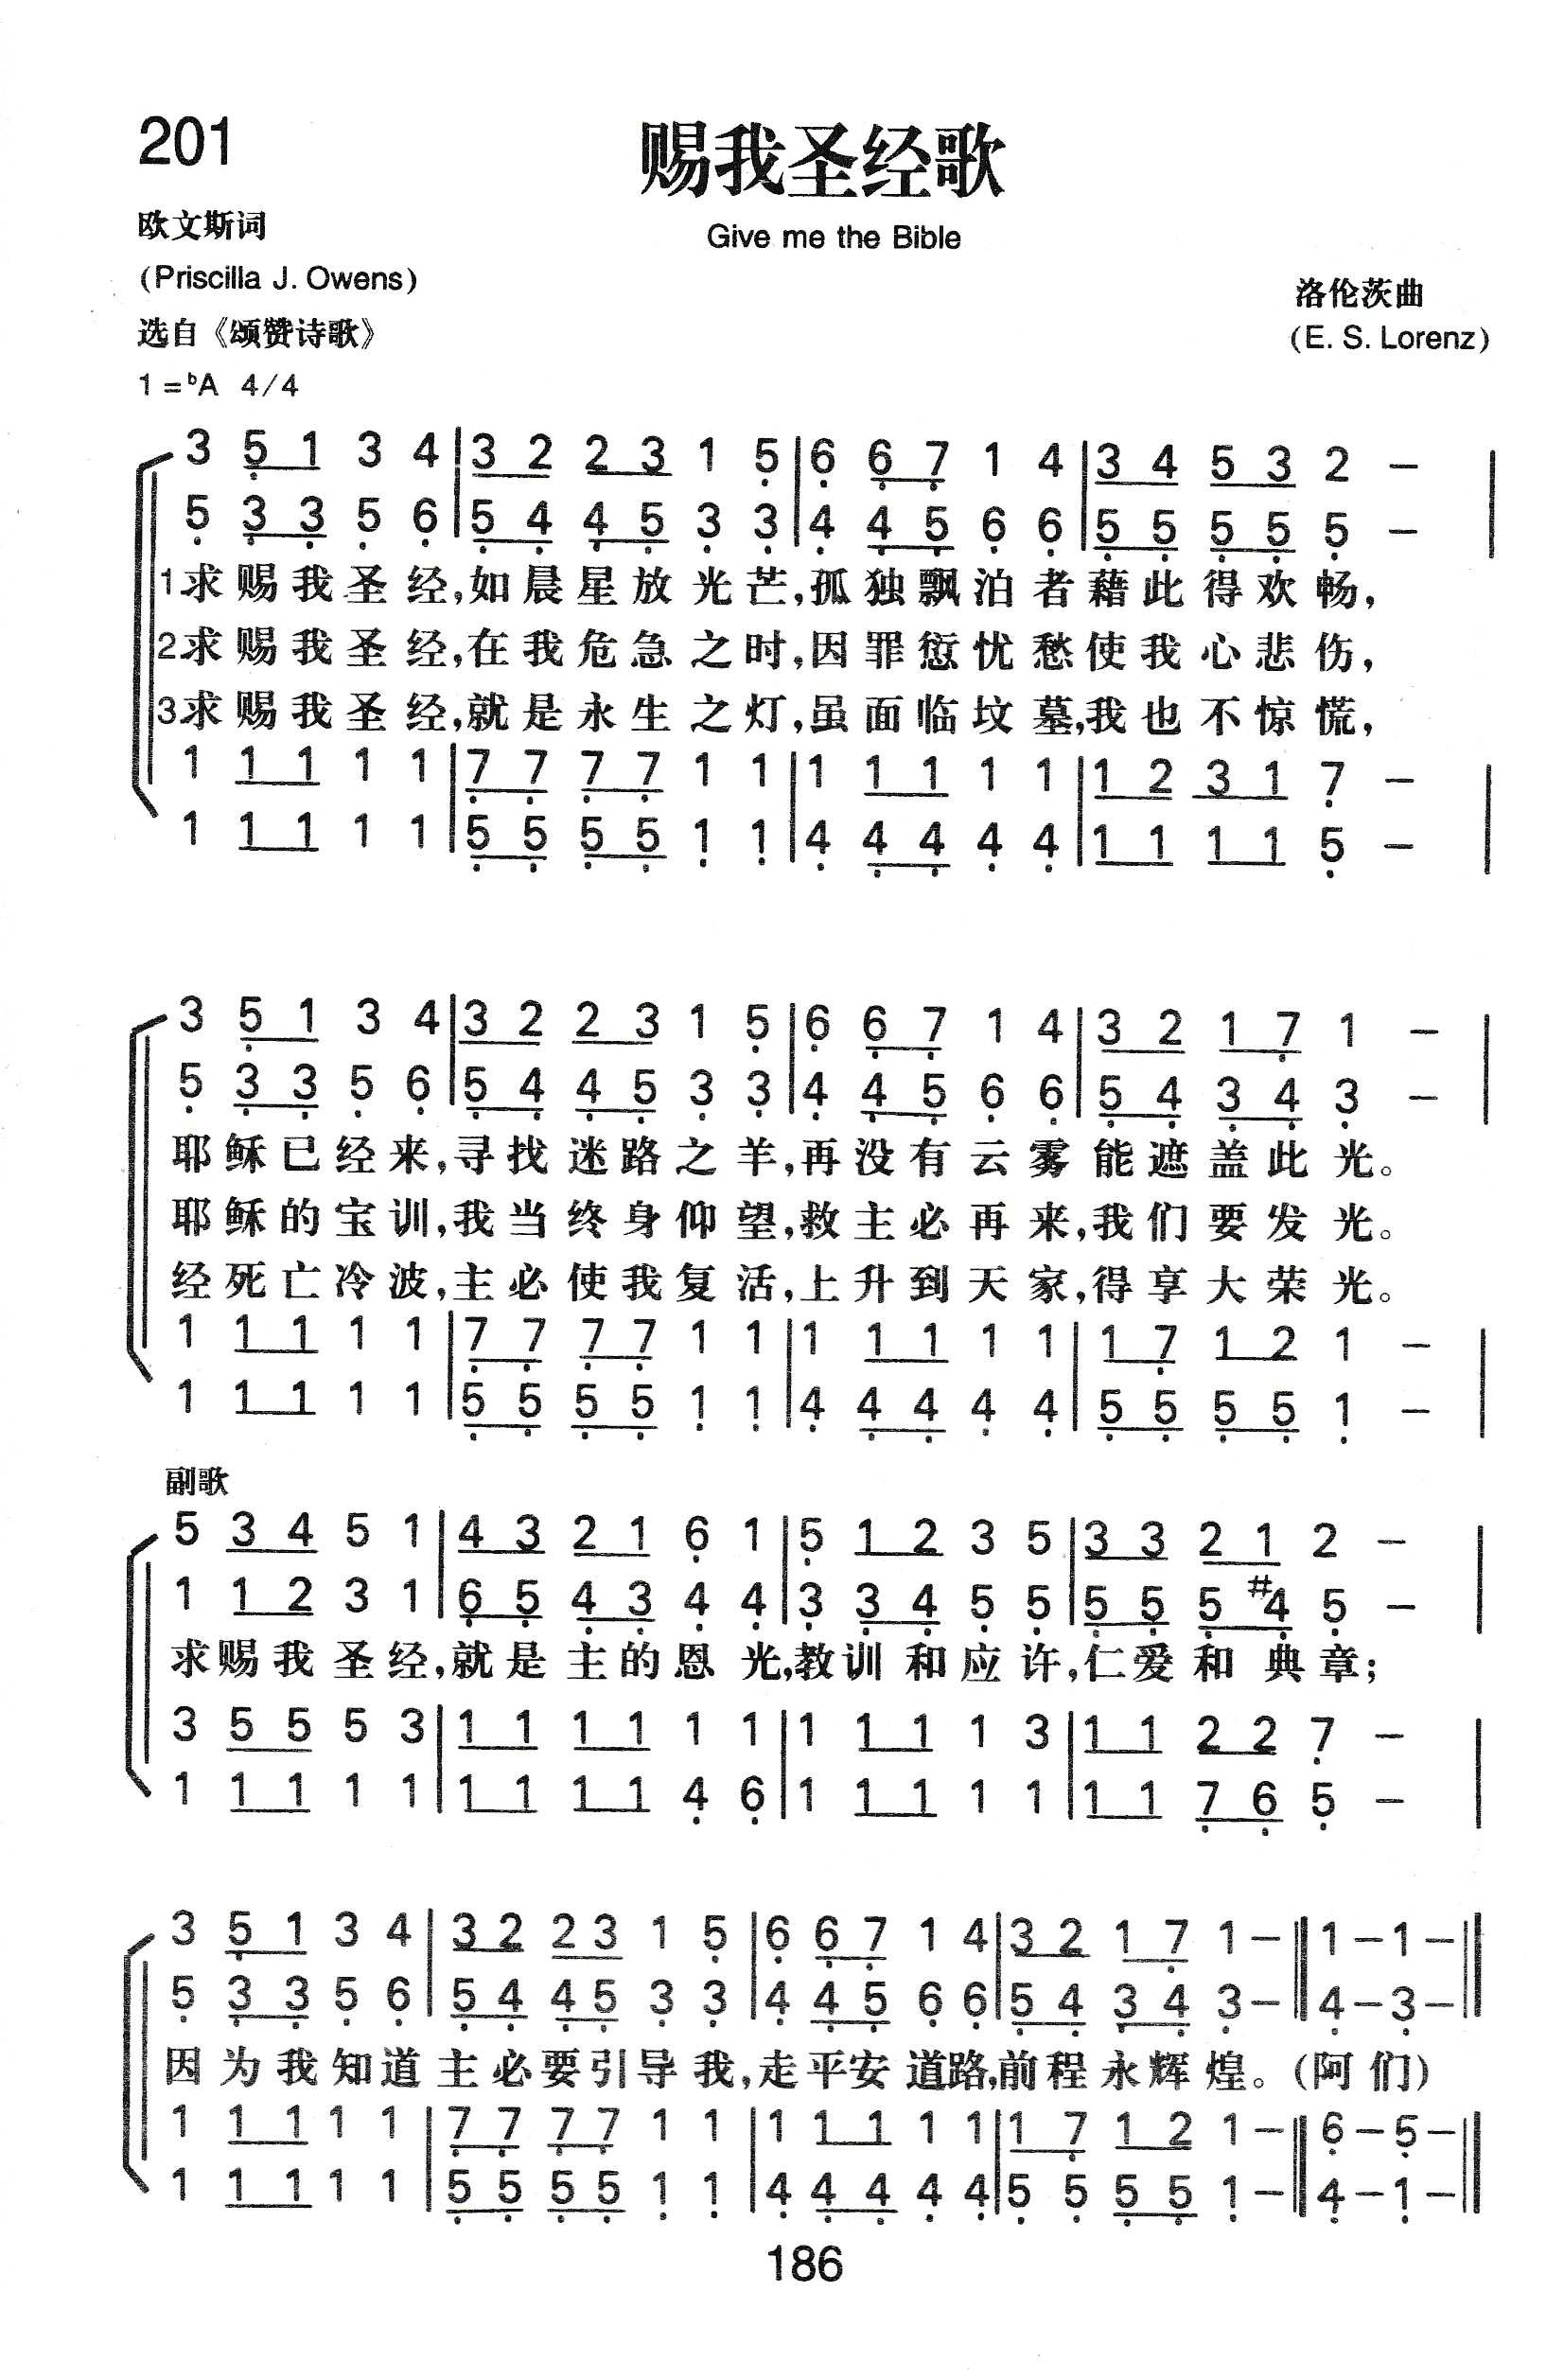 201
赐我圣经歌
欧文斯词
Give me the Bible
(Priscilla J. Owens)
洛伦茨曲
选自《颂赞诗歌》
(E. S. Lorenz)
1=ᵇA 4/4
3 5̣ 1 3 4 | 3 2 2 3 1 5̣ | 6̣ 6̣ 7̣ 1 4 | 3 4 5 3 2 – |
5̣ 3̣ 3̣ 5̣ 6̣ | 5̣ 4̣ 4̣ 5̣ 3̣ 3̣ | 4̣ 4̣ 5̣ 6̣ 6̣ | 5̣ 5̣ 5̣ 5̣ 5̣ – |
1求赐我圣经,如晨星放光芒,孤独飘泊者藉此得欢畅,
2求赐我圣经,在我危急之时,因罪愆忧愁使我心悲伤,
3求赐我圣经,就是永生之灯,虽面临坟墓,我也不惊慌,
1 1 1 1 1 | 7̣ 7̣ 7̣ 7̣ 1 1 | 1 1 1 1 1 | 1 2 3 1 7̣ – |
1 1 1 1 1 | 5̣ 5̣ 5̣ 5̣ 1̣ 1̣ | 4̣ 4̣ 4̣ 4̣ 4̣ | 1 1 1 1 5̣ – |
3 5̣ 1 3 4 | 3 2 2 3 1 5̣ | 6̣ 6̣ 7̣ 1 4 | 3 2 1 7̣ 1 – |
5̣ 3̣ 3̣ 5̣ 6̣ | 5̣ 4̣ 4̣ 5̣ 3̣ 3̣ | 4̣ 4̣ 5̣ 6̣ 6̣ | 5̣ 4̣ 3̣ 4̣ 3̣ – |
耶稣已经来,寻找迷路之羊,再没有云雾能遮盖此光。
耶稣的宝训,我当终身仰望,救主必再来,我们要发光。
经死亡冷波,主必使我复活,上升到天家,得享大荣光。
1 1 1 1 1 | 7̣ 7̣ 7̣ 7̣ 1 1 | 1 1 1 1 1 | 1 7̣ 1 2 1 – |
1 1 1 1 1 | 5̣ 5̣ 5̣ 5̣ 1̣ 1̣ | 4̣ 4̣ 4̣ 4̣ 4̣ | 5̣ 5̣ 5̣ 5̣ 1̣ – |
副歌
5 3 4 5 1 | 4 3 2 1 6̣ 1 | 5̣ 1 2 3 5 | 3 3 2 1 2 – |
1 1 2 3 1 | 6̣ 5̣ 4̣ 3̣ 4̣ 4̣ | 3̣ 3̣ 4̣ 5̣ 5̣ | 5̣ 5̣ 5̣ #4̣ 5̣ – |
求赐我圣经,就是主的恩光,教训和应许,仁爱和典章;
3 5 5 5 3 | 1 1 1 1 1 1 | 1 1 1 1 3 | 1 1 2 2 7̣ – |
1 1 1 1 1 | 1 1 1 1 4̣ 6̣ | 1 1 1 1 1 | 1 1 7̣ 6̣ 5̣ – |
3 5̣ 1 3 4 | 3 2 2 3 1 5̣ | 6̣ 6̣ 7̣ 1 4 | 3 2 1 7̣ 1 – ‖ 1 – 1 – ‖
5̣ 3̣ 3̣ 5̣ 6̣ | 5̣ 4̣ 4̣ 5̣ 3̣ 3̣ | 4̣ 4̣ 5̣ 6̣ 6̣ | 5̣ 4̣ 3̣ 4̣ 3̣ – ‖ 4̣ – 3̣ – ‖
因为我知道主必要引导我,走平安道路,前程永辉煌。(阿们)
1 1 1 1 1 | 7̣ 7̣ 7̣ 7̣ 1 1 | 1 1 1 1 1 | 1 7̣ 1 2 1 – ‖ 6̣ – 5̣ – ‖
1 1 1 1 1 | 5̣ 5̣ 5̣ 5̣ 1̣ 1̣ | 4̣ 4̣ 4̣ 4̣ 4̣ | 5̣ 5̣ 5̣ 5̣ 1̣ – ‖ 4̣ – 1̣ – ‖
186